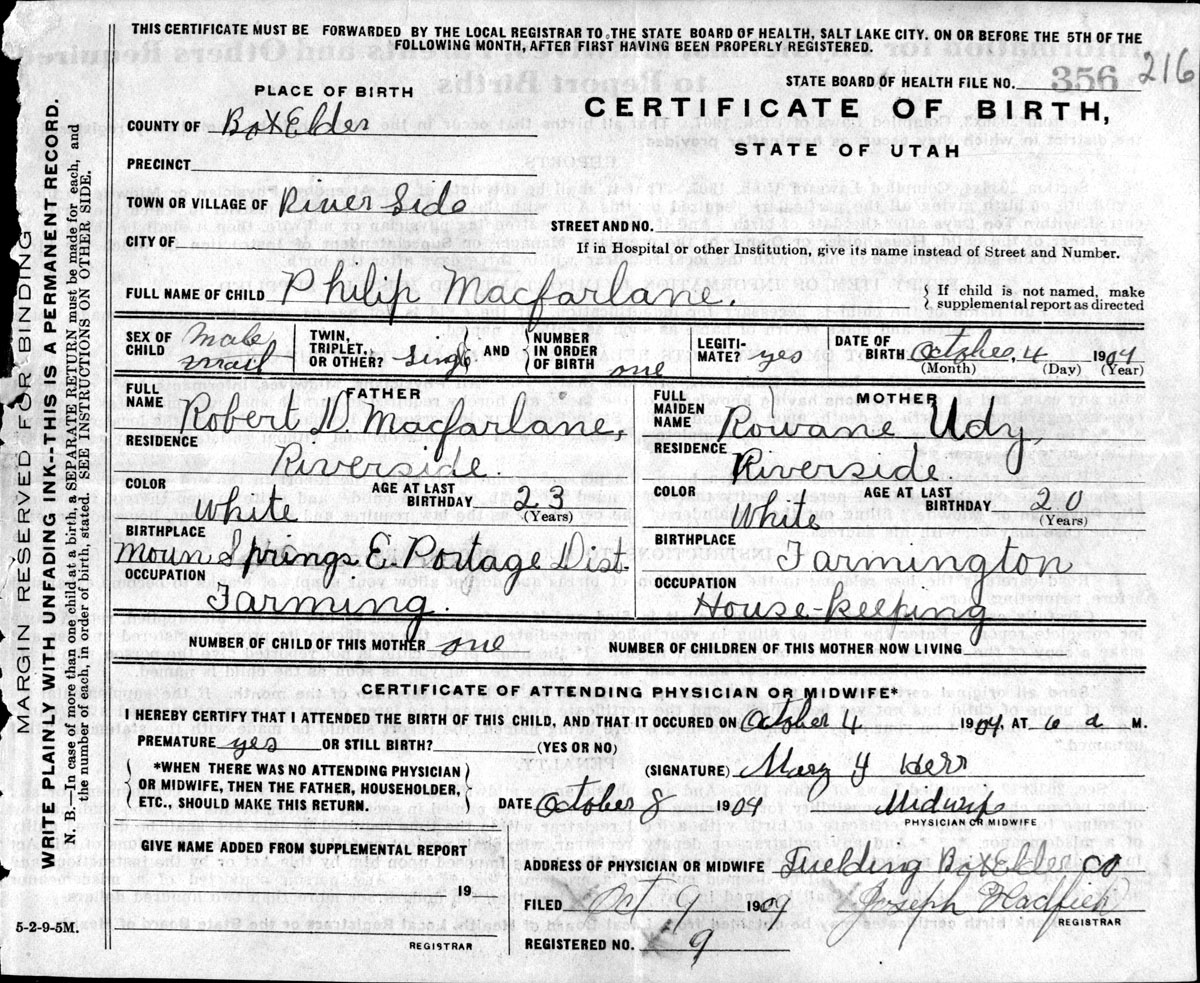 THIS CERTIFICATE MUST BE FORWARDED BY THE LOCAL REGISTRAR TO THE STATE BOARD OF HEALTH, SALT LAKE CITY, ON OR BEFORE THE 5TH OF THE
FOLLOWING MONTH, AFTER FIRST HAVING BEEN PROPERLY REGISTERED.
216
STATE BOARD OF HEALTH FILE NO. 356
PLACE OF BIRTH
CERTIFICATE OF BIRTH,
COUNTY OF Box Elder
STATE OF UTAH
PRECINCT
TOWN OR VILLAGE OF River Side
STREET AND NO.
CITY OF
If in Hospital or other Institution, give its name instead of Street and Number.
FULL NAME OF CHILD Philip Macfarlane.
If child is not named, make
supplemental report as directed
SEX OF CHILD male mail TWIN, TRIPLET, OR OTHER? single AND NUMBER IN ORDER OF BIRTH one LEGITI-MATE? yes DATE OF BIRTH October, 4 1904
(Month) (Day) (Year)
FATHER
FULL NAME Robert D. Macfarlane,
RESIDENCE Riverside.
COLOR White AGE AT LAST BIRTHDAY 23 (Years)
BIRTHPLACE Moun Springs E. Portage Dist.
OCCUPATION Farming.
MOTHER
FULL MAIDEN NAME Rowane Udy,
RESIDENCE Riverside.
COLOR White AGE AT LAST BIRTHDAY 20 (Years)
BIRTHPLACE Farmington
OCCUPATION House-keeping
NUMBER OF CHILD OF THIS MOTHER one NUMBER OF CHILDREN OF THIS MOTHER NOW LIVING
CERTIFICATE OF ATTENDING PHYSICIAN OR MIDWIFE*
I HEREBY CERTIFY THAT I ATTENDED THE BIRTH OF THIS CHILD, AND THAT IT OCCURED ON October 4 1904, AT 6 a M.
PREMATURE yes OR STILL BIRTH? (YES OR NO)
*WHEN THERE WAS NO ATTENDING PHYSICIAN
OR MIDWIFE, THEN THE FATHER, HOUSEHOLDER,
ETC., SHOULD MAKE THIS RETURN.
(SIGNATURE) Mary Y
DATE October 8 1904 Midwife
PHYSICIAN OR MIDWIFE
GIVE NAME ADDED FROM SUPPLEMENTAL REPORT
19
REGISTRAR
ADDRESS OF PHYSICIAN OR MIDWIFE Fielding Box Elder co
FILED Oct 9 1909 Joseph
REGISTRAR
REGISTERED NO. 9
5-2-9-5M.
MARGIN RESERVED FOR BINDING
WRITE PLAINLY WITH UNFADING INK--THIS IS A PERMANENT RECORD.
N. B.—In case of more than one child at a birth, a SEPARATE RETURN must be made for each, and
the number of each, in order of birth, stated. SEE INSTRUCTIONS ON OTHER SIDE.